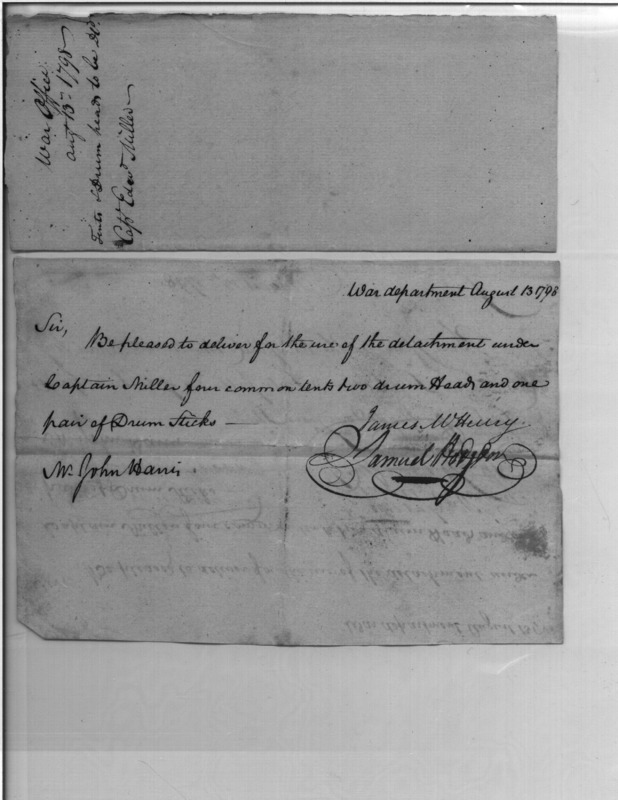 War Office
augt 13th 1798
Tents & Drum heads to be &c.
Capt Edwd Miller
War department August 13 1798
Sir,
Be pleased to deliver for the use of the detachment under
Captain Miller four common tents two drum Heads and one
pair of Drum Sticks —
James McHenry.
Samuel Hodgdon
Mr John Harris